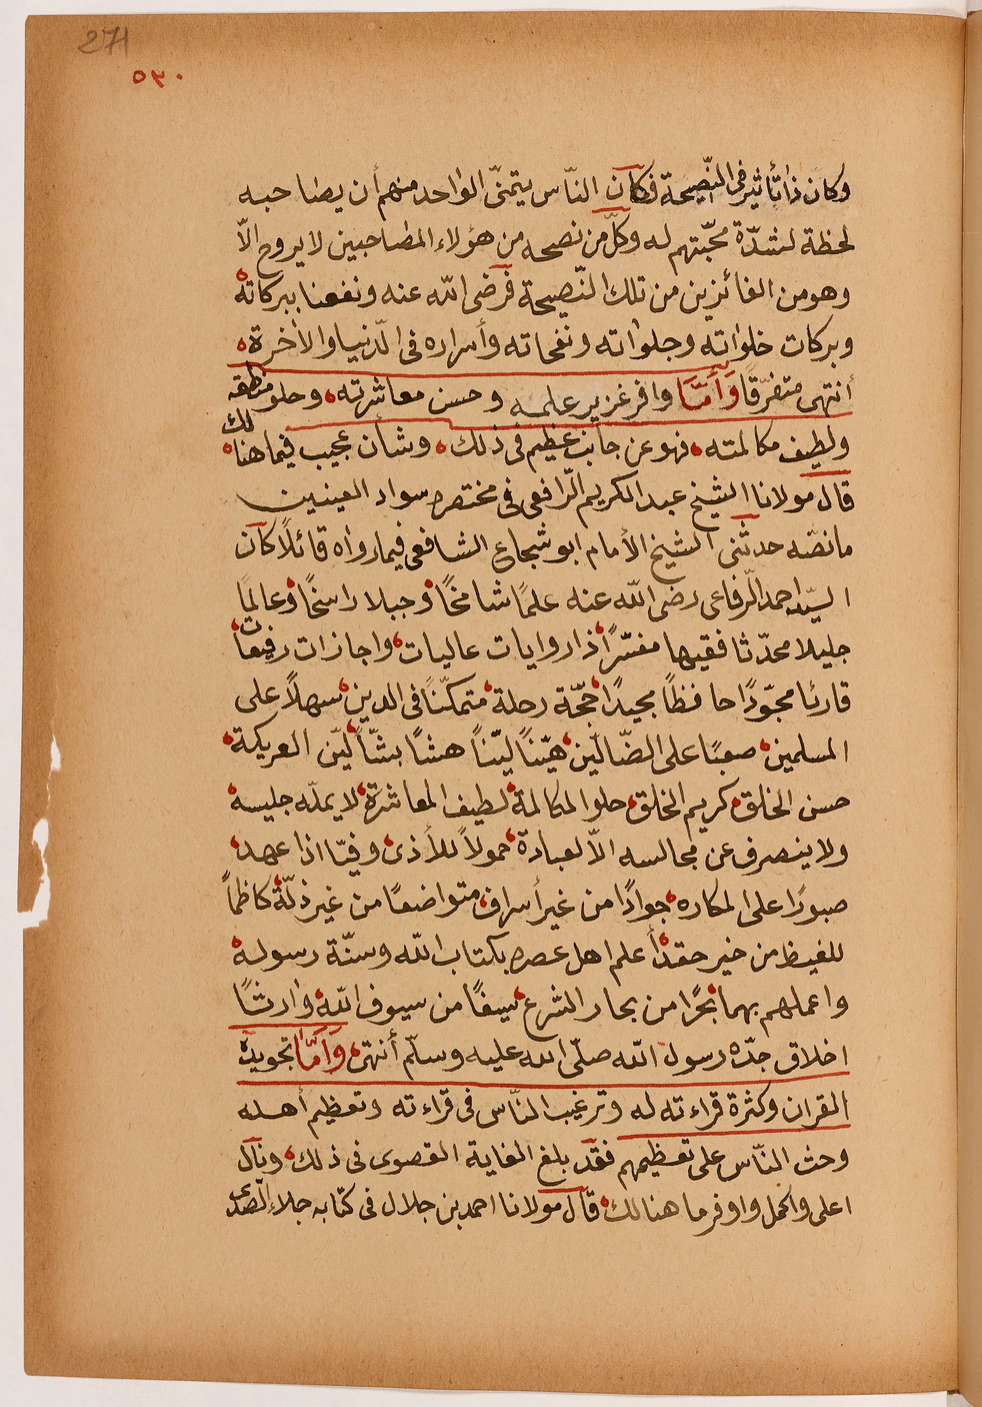 271
٥٣٠
وكان ذا تأثير فى النّصيحة فكان النّاس يتمنّى الواحد منهم أن يصاحبه
لحظة لشدّة محبّتهم له وكلّ من نصحه من هؤلاء المصاحبين لا يروح الّا
وهو من الفائزين من تلك النّصيحة فرضى اللّه عنه ونفعنا ببركاته
وبركات خلواته وجلواته ونفحاته وأسراره فى الدّنيا والأخرة
أنتهى متفرّقًا وَأمَّا وافر غزير علمه وحسن معاشرته وحلو منطقه
ولطيف مكالمته فهو عن جانب عظيم فى ذلك وشأن عجيب فيما هنالك
قال مولانا الشيخ عبد الكريم الرّافعى فى مختصره سواد العينين
ما نصّه حدثنى الشيخ الأمام ابو شجاع الشافعى فيما رواه قائلًا كان
السيّد احمد الرّفاعى رضى اللّه عنه علمًا شامخًا وجبلا راسخًا وعالمًا
جليلا محدّثا فقيها مفسّرًا ذا روايات عاليات واجازات رفيعات
قارئا مجوّدًا حافظًا مجيدًا حجّة رحلة متمكّنًا فى الدين سهلًا على
المسلمين صعبًا على الضّالّين هيّنًا ليّنًا هشّا بشّاً ليّن العريكة
حسن الخلق كريم الخلق حلو المكالمة لطيف المعاشرة لا يملّه جليسه
ولا ينصرف عن مجالسه الّا لعبادة حمولاً للأذى وفيّا اذا عهد
صبورًا على المكاره جوادًا من غير أسراف متواضعًا من غير ذلّة كاظماً
للغيظ من غير حقد أعلم اهل عصره بكتاب اللّه وسنّة رسوله
واعملهم بهما بحرًا من بحار الشرع سيفًا من سيوف اللّه وارثًا
اخلاق جدّه رسول اللّه صلّى اللّه عليه وسلّم أنتهى وَأَمَّا تجويده
القران وكثرة قراءته له وترغيب النّاس فى قراءته وتعظيم أهله
وحث النّاس على تعظيمهم فقد بلغ الغاية القصوى فى ذلك ونال
اعلى واكمل واوفر ما هنالك قال مولانا احمد بن جلال فى كتابه جلاء الصّدى